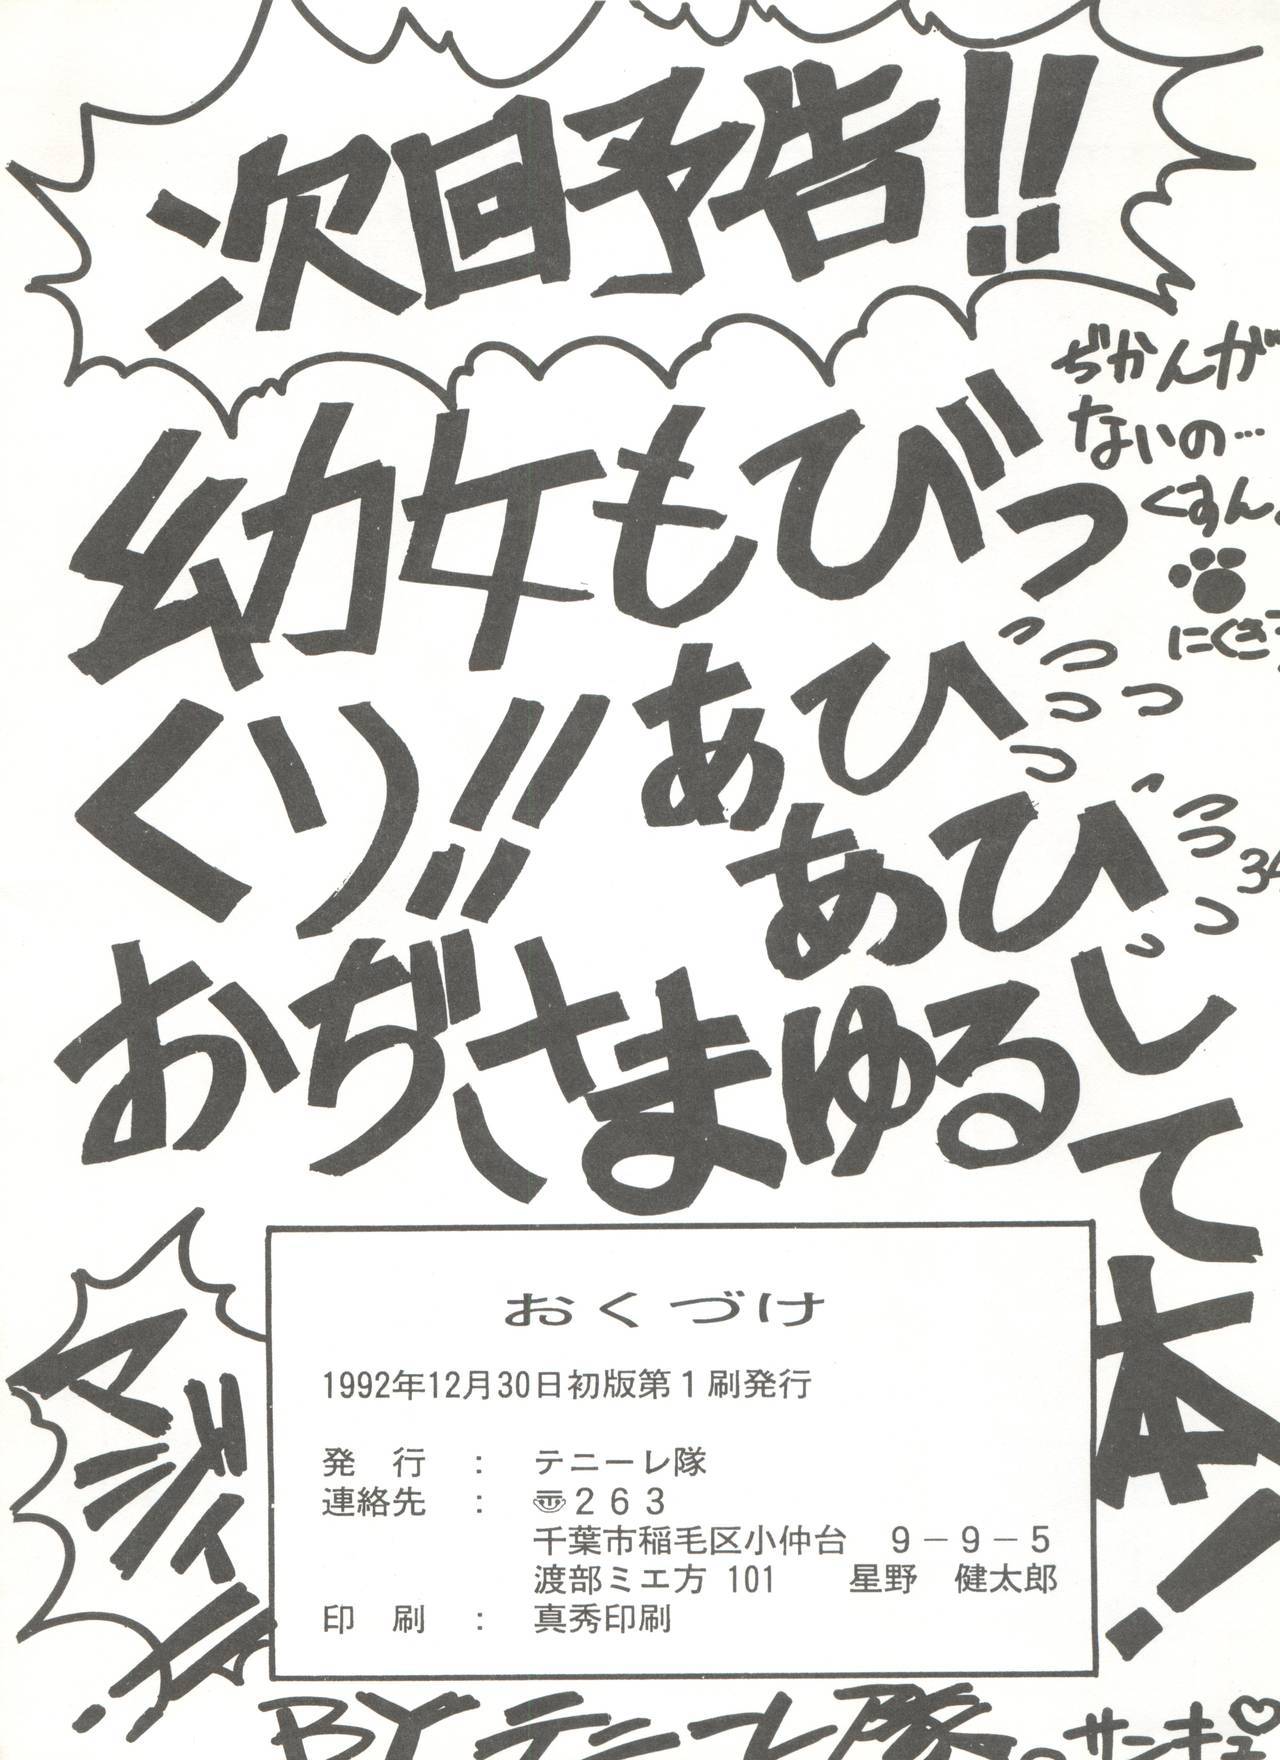 次回予告!!
ぢかんが
ないの…
くすん。
幼女もびっ
くり!!
あひっっっっ
ああびっっっっ
おぢさまゆるして本!
マジィ
34
おくづけ
1992年12月30日初版第1刷発行
発 行 : テニーレ隊
連絡先 : 〠263
千葉市稲毛区小仲台 9-9-5
渡部ミエ方 101 星野 健太郎
印 刷 : 真秀印刷
BYテニーレ隊
サンキュ♡